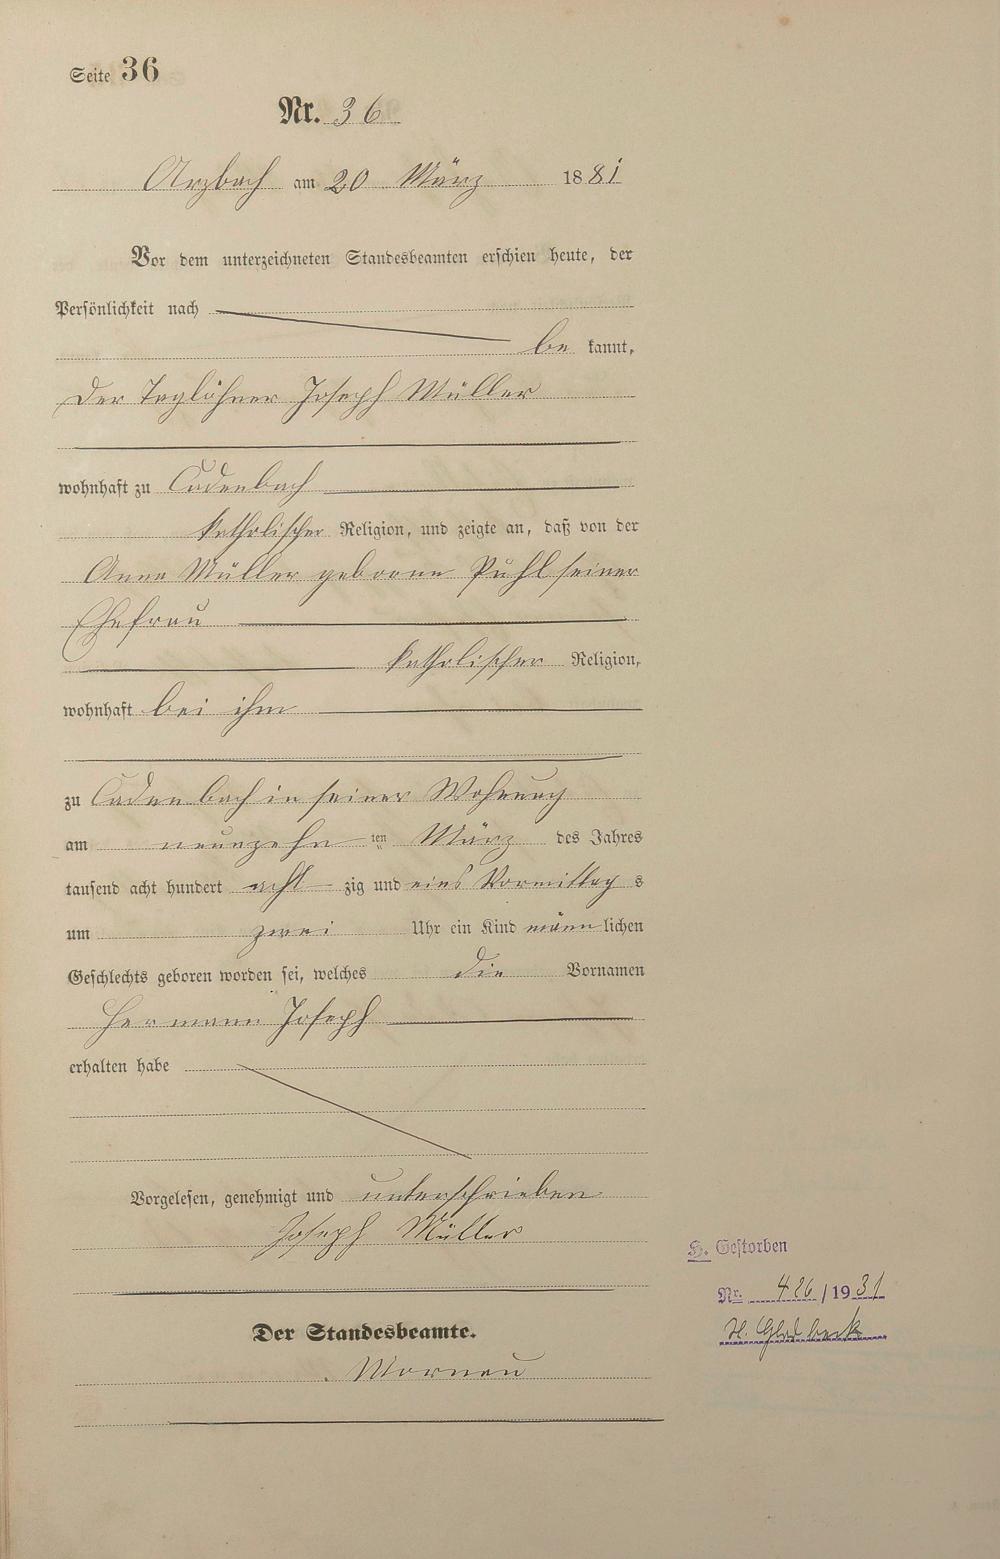 Seite 36
Nr. 36
Arzbach am 20 März 1881
Vor dem unterzeichneten Standesbeamten erschien heute, der
Persönlichkeit nach
be kannt,
der Taglöhner Joseph Müller
wohnhaft zu Cadenbach
katholischer Religion, und zeigte an, daß von der
Anna Müller geborne Puhl seiner
Ehefrau
katholischer Religion,
wohnhaft bei ihm
zu Cadenbach in seiner Wohnung
am neunzehn ten März des Jahres
tausend acht hundert acht zig und eins Vormittag s
um zwei Uhr ein Kind männ lichen
Geschlechts geboren worden sei, welches die Vornamen
Hermann Joseph
erhalten habe
Vorgelesen, genehmigt und unterschrieben
Joseph Müller
Der Standesbeamte.
H. Gestorben
Nr. 426/1931
Gladbeck